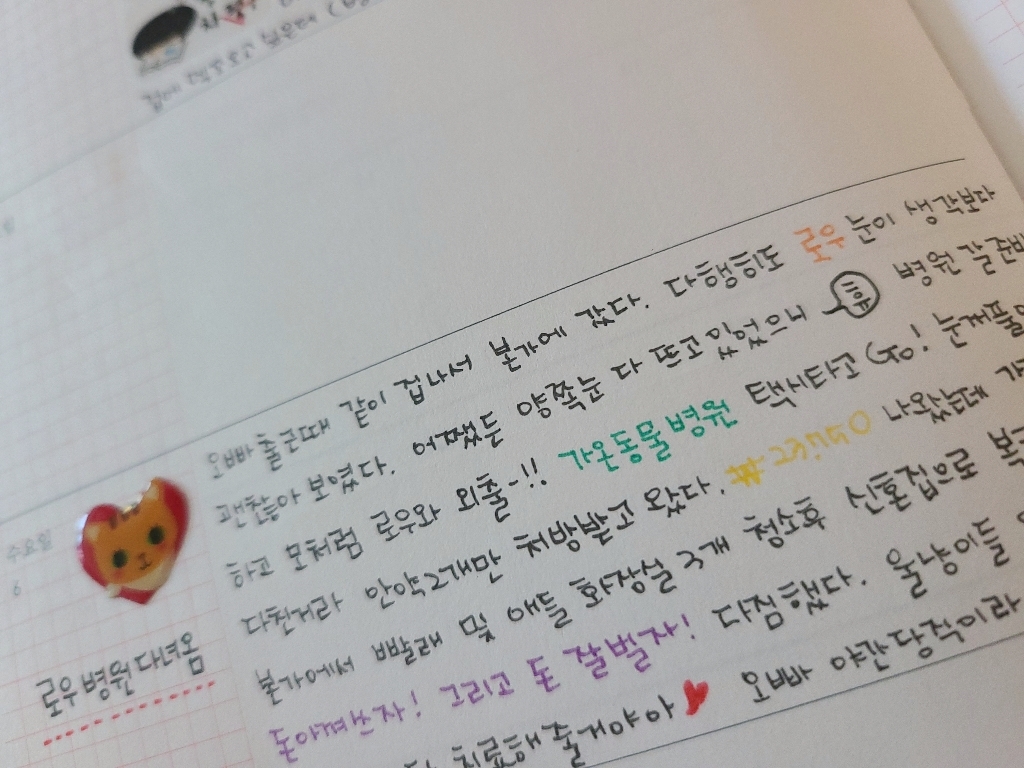 오빠 출근때 같이 겁나서 본가에 갔다. 다행히도 로우 눈이 생각보다
괜찮아 보였다. 어쨌든 양쪽눈 다 뜨고있었으니 병원 갈준비
하고 모처럼 로우와 외출~!! 가온동물병원 택시타고 Go!
다친거라 안약2개만 처방받고 왔다. 나왔는데
본가에서 빨래 및 애들 화장실 3개 청소후 신혼집으로
돈아껴쓰자! 그리고 돈 잘벌자! 다짐했다. 울냥이들
치료해줄게야아 오빠 야간당직이라
수요일
6
로우병원다녀옴